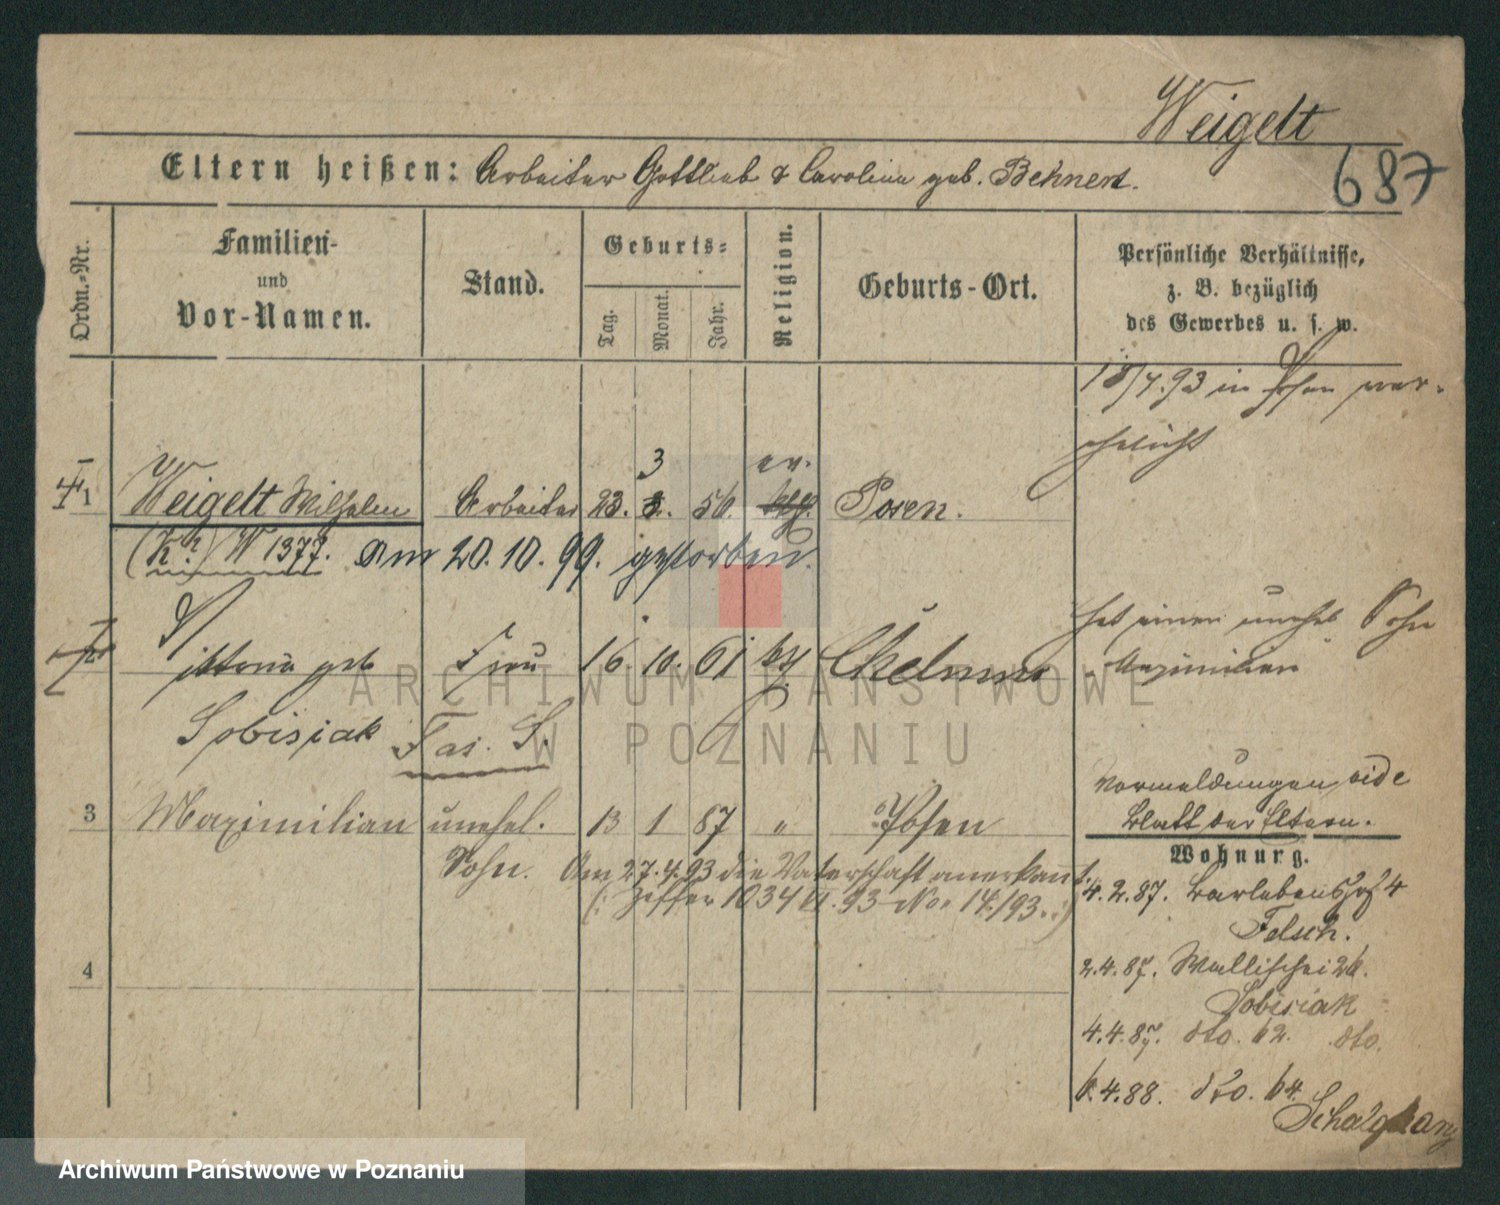 Weigelt
687
Eltern heißen: Arbeiter Gottlieb & Carolina geb. Behnert.
Ordn.-Nr.
Familien- und Vor-Namen.
Stand.
Geburts-
Tag.
Monat.
Jahr.
Religion.
Geburts-Ort.
Persönliche Verhältnisse,
z. B. bezüglich
des Gewerbes u. s. w.
18/4.93 in Posen ver-
ehelicht
1 Weigelt Wilhelm Arbeiter 23. 3 56. ev. Posen.
W 1377. Am 20.10.99. gestorben.
geb Frau 16. 10. 61 Chelmno
hat einen unehel Sohn
Maximilian
Sobisiak
3 Maximilian unehel. 13 1 87 " Posen
Sohn. Am 27.4.93 die Vaterschaft anerkannt.
(: Ziffer 1034 VI. 93 No. 14./93. :)
Vormeldungen vide
Blatt der Eltern.
Wohnung.
4.2.87. 4
Felsch.
4
2.4.87. Wallischei 26.
Sobisiak
4.4.87. dto. 62. dto.
6.4.88. dto. 64.
ARCHIWUM PAŃSTWOWE
W POZNANIU
Archiwum Państwowe w Poznaniu